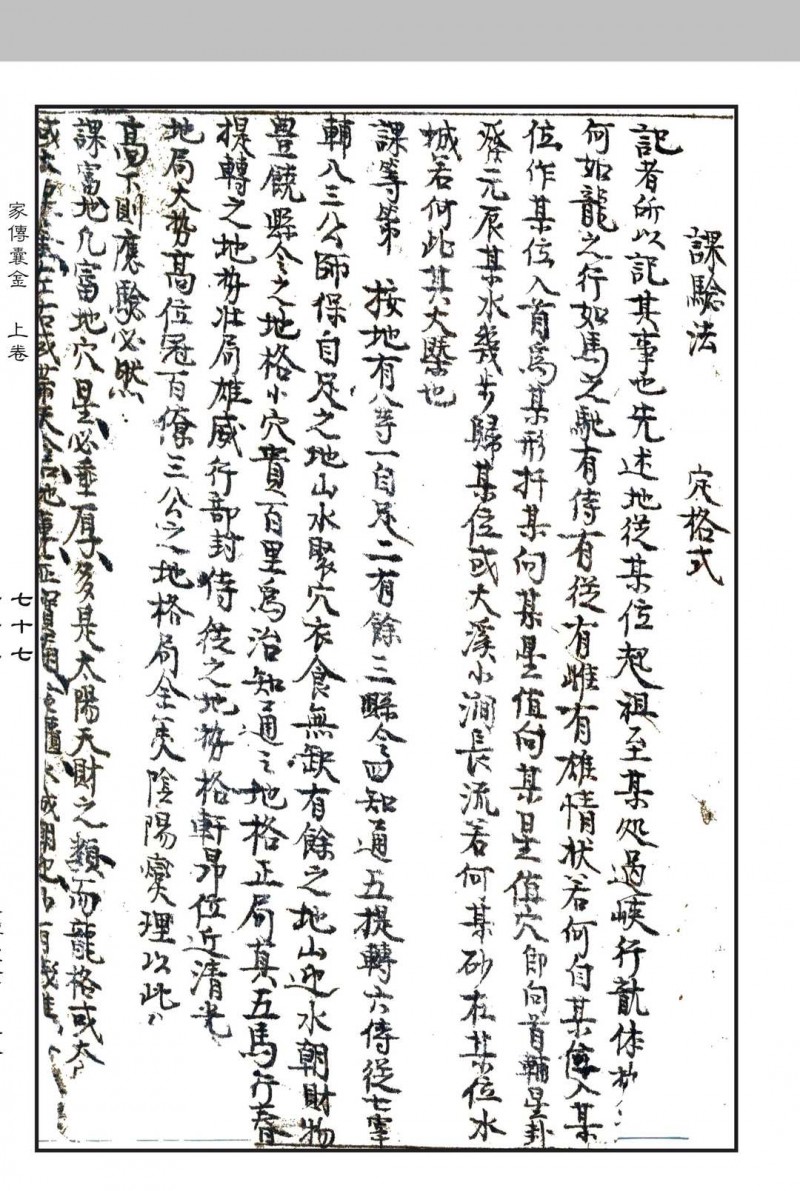 課驗法 定格式
記者所以記其事也先述地從某位起祖至某処過峽行龍体
何如龍之行如馬之馳有侍有從有雌有雄情状若何自某位入某
位作某位入首爲某形扦某向某星值向某星值穴即向首輔星卦
癸元辰某水幾步歸某位或大溪小澗長流若何某砂在某位水
城若何此其大槩也
課等第 按地有八等一自足二有餘三縣令四知通五提轉六侍從七宰
輔八三公師保自足之地山水聚穴衣食無缺有餘之地山迎水朝財物
豊饒縣令之地格小穴貴百里爲治知通之地格正局真五馬行春
提轉之地势壮局雄威行部封侍從之地势格軒昂位近清光
地局大势高位冠百僚三公之地格局全美陰陽燮理以此
高下則應驗必然
課富地凡富地穴星必垂厚多是太陽天財之類而龍格或太
家傳囊金 上卷
七十七